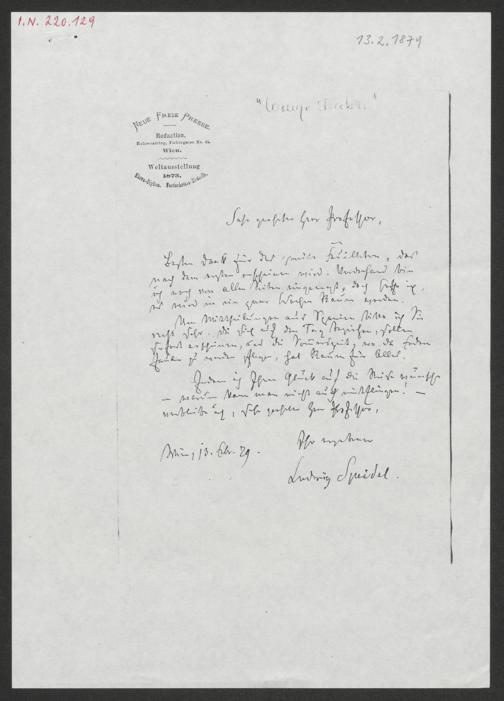 I.N. 220.129
13.2.1879
NEUE FREIE PRESSE.
Redaction,
Wien.
Weltausstellung
1873.
Sehr geehrter Herr Professor,
Besten Dank für das Feuilleton, das
nach dem ersten erscheinen wird. Vorderhand bin
ich noch von allen Seiten eingeengt, doch hoffe ich,
es wird in ein paar Wochen Raum werden.
Um Mittheilungen aus Spanien bitte ich Sie
recht sehr. Die sich auf den Tag beziehen, sollen
sofort erscheinen, und die Sommerszeit, wo die
zu werden pflegt, hat Raum für Alles.
Indem ich Ihnen Glück auf die Reise wünsche
— warum kann man nicht auch mitfliegen! —
verbleibe ich, sehr geehrter Herr Professor,
Ihr ergebener
Wien, 13. Febr. 79.
Ludwig Speidel.